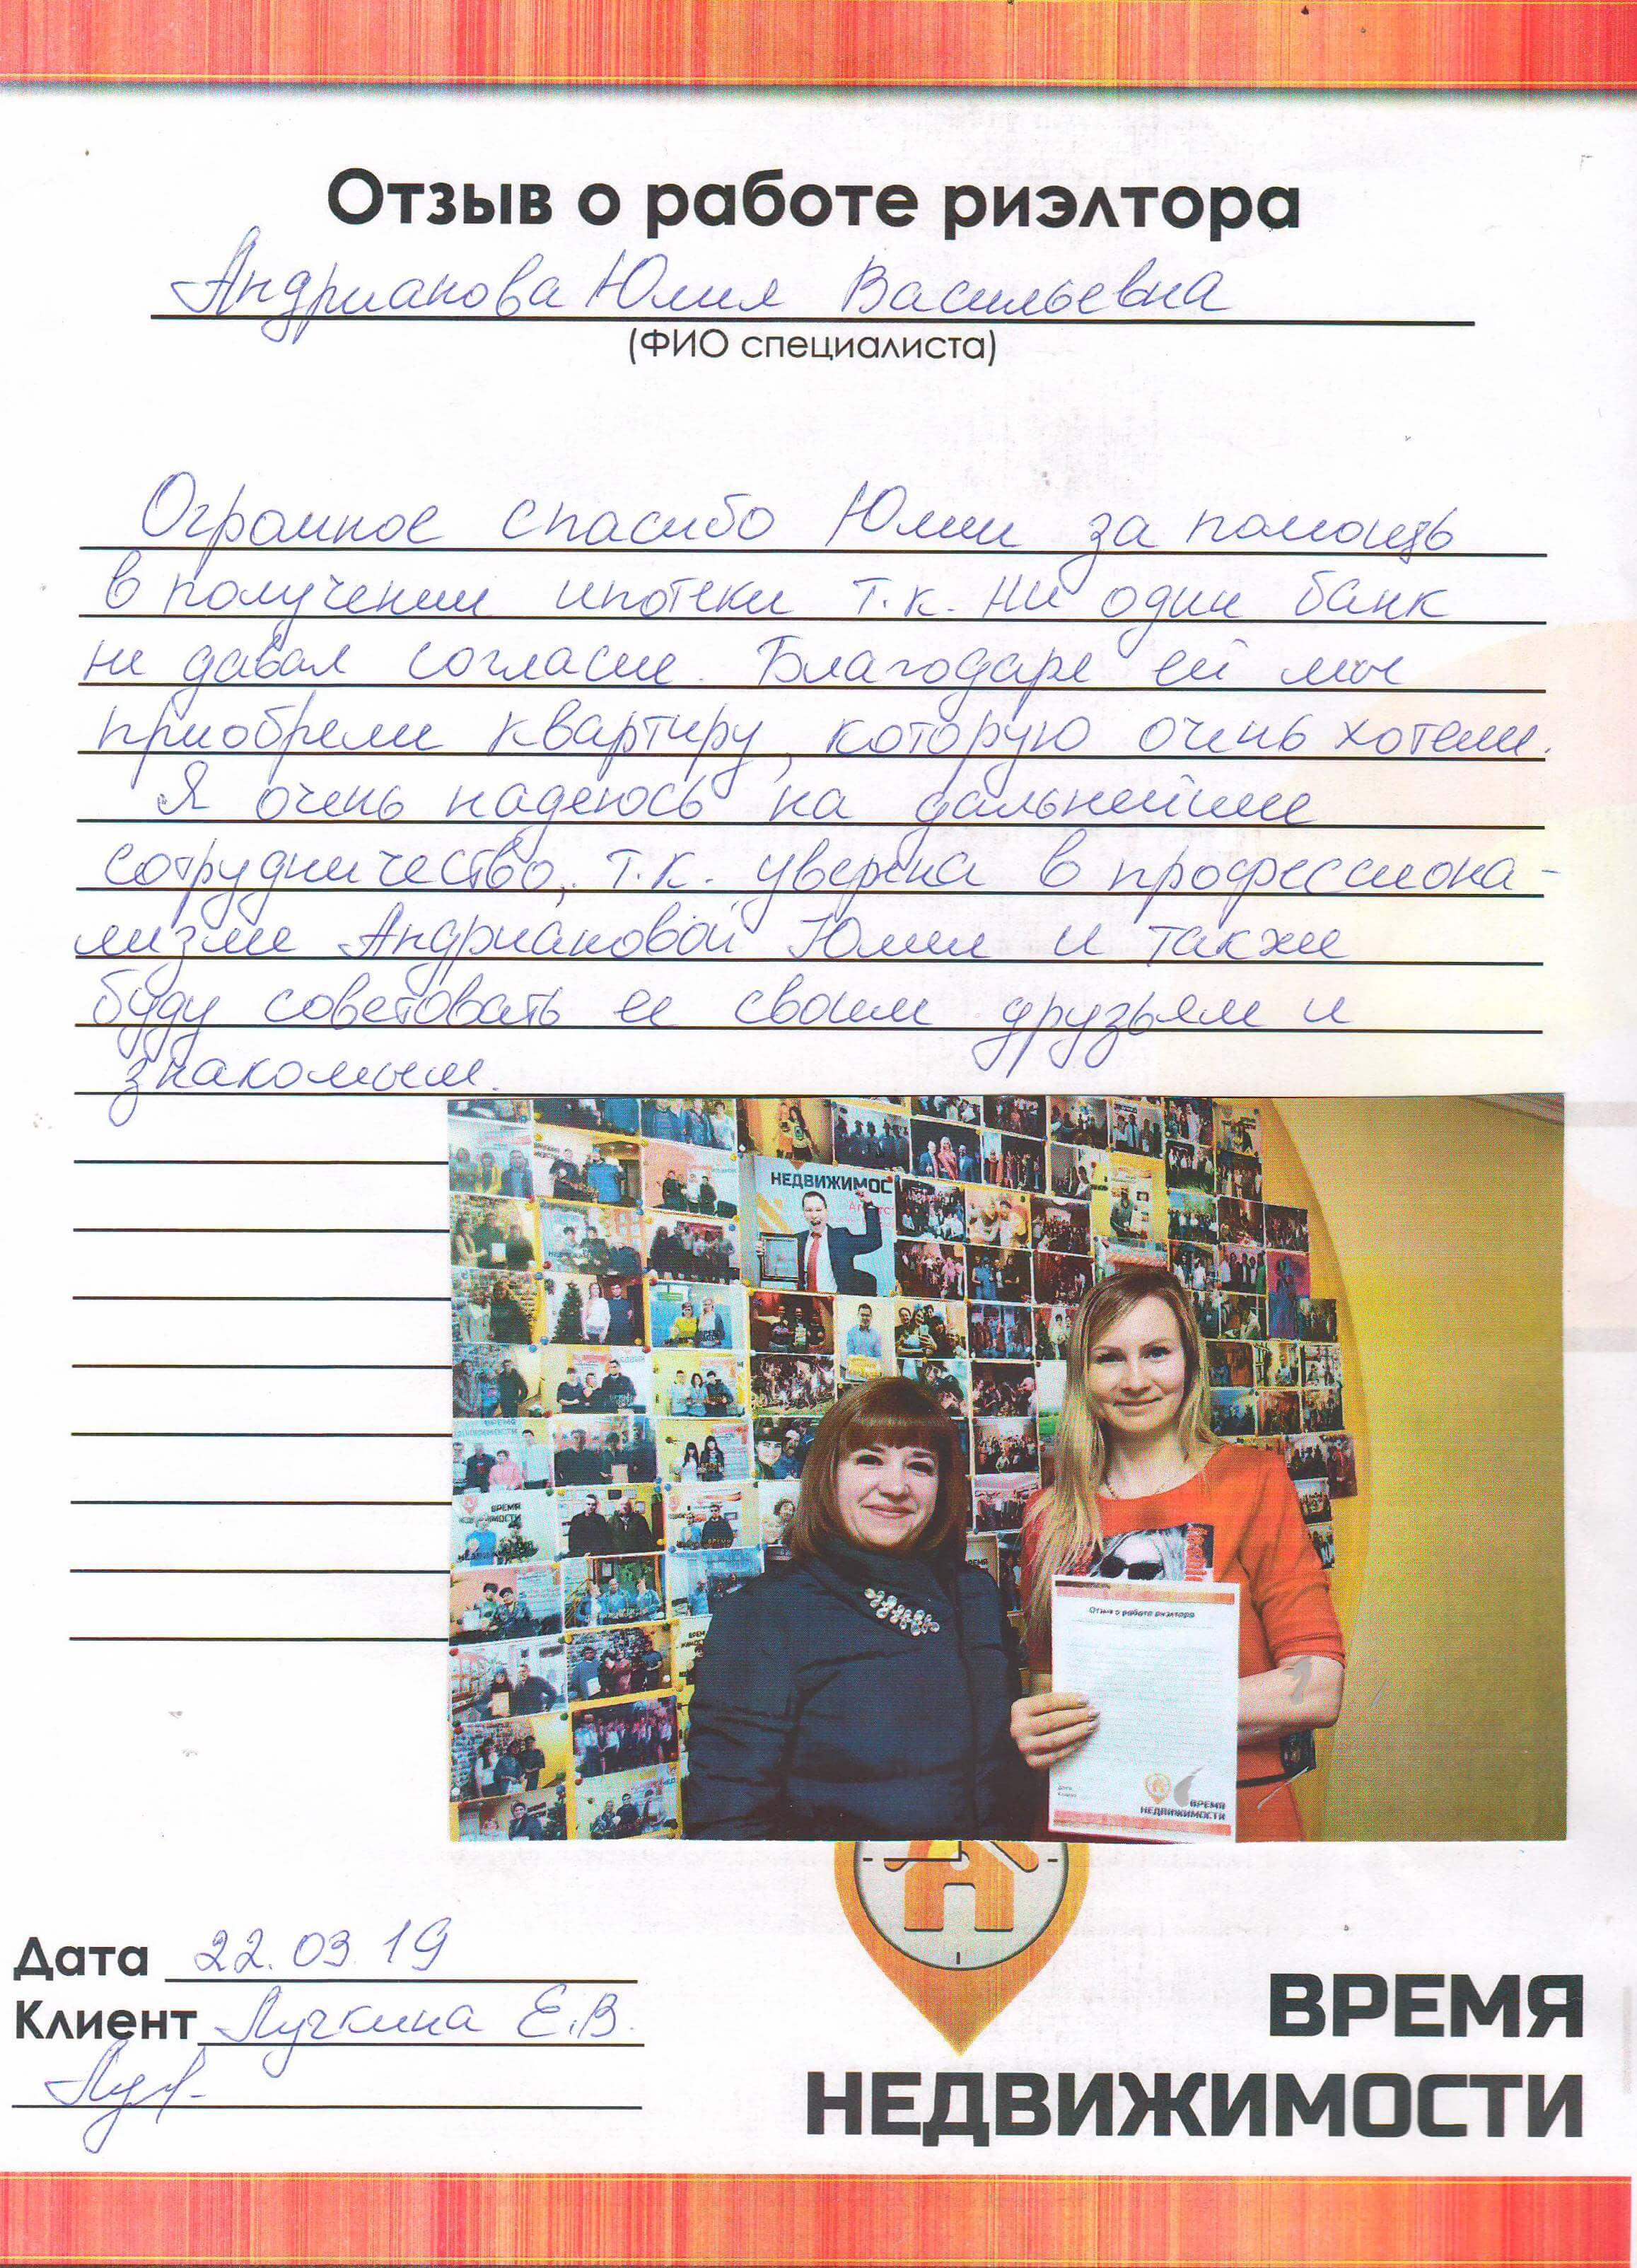 Отзыв о работе риэлтора
Андрианова Юлия Васильевна
(ФИО специалиста)
Огромное спасибо Юлии за помощь
в получении ипотеки т.к. ни один банк
не давал согласие. Благодаря ей мы
приобрели квартиру, которую очень хотели.
Я очень надеюсь на дальнейшее
сотрудничество, т.к. уверена в профессиона-
лизме Андриановой Юлии и также
буду советовать ее своим друзьям и
знакомым.
НЕДВИЖИМОС
Отзыв о работе риэлтора
ВРЕМЯ
НЕДВИЖИМОСТИ
Дата 22.03.19
Клиент Лучкина Е.В.
ВРЕМЯ
НЕДВИЖИМОСТИ